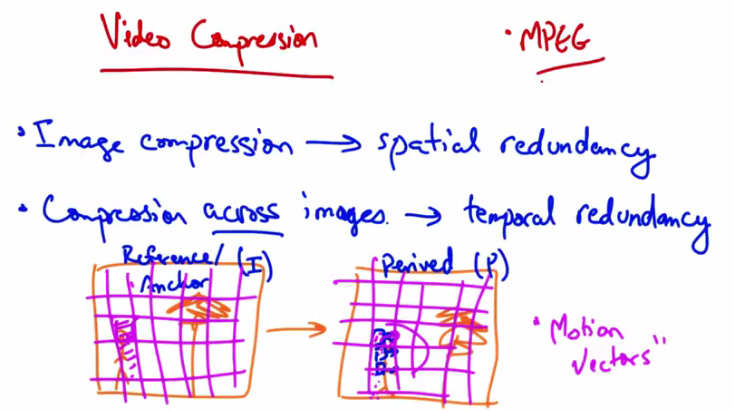 Video Compression
• MPEG
• Image compression → spatial redundancy
• Compression across images. → temporal redundancy
Reference/ (I)
Anchor
Derived (P)
• Motion
Vectors"